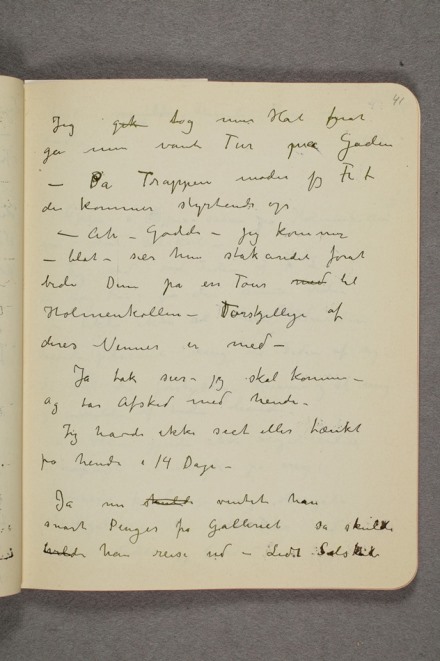 41
Jeg gik tog min Hat forat
gå min vante Tur paa Gaden
— På Trappen møder jeg Fr L
der kommer styrtende op
— Ah – Goddag – Jeg kommer
– blot – sier hun stakåndet forat
bede Dem på en Tour med til
Holmenkollen – Forskjellige af
deres Venner er med –
Ja tak sier jeg skal komme –
og tar Afsked med hende.
Jeg havde ikke seet eller tænkt
på hende i 14 Dage –
Ja nu skulde ventet han
snart Penger fra Galleriet så skulde
vilde han reise ud – Lidt Selskab